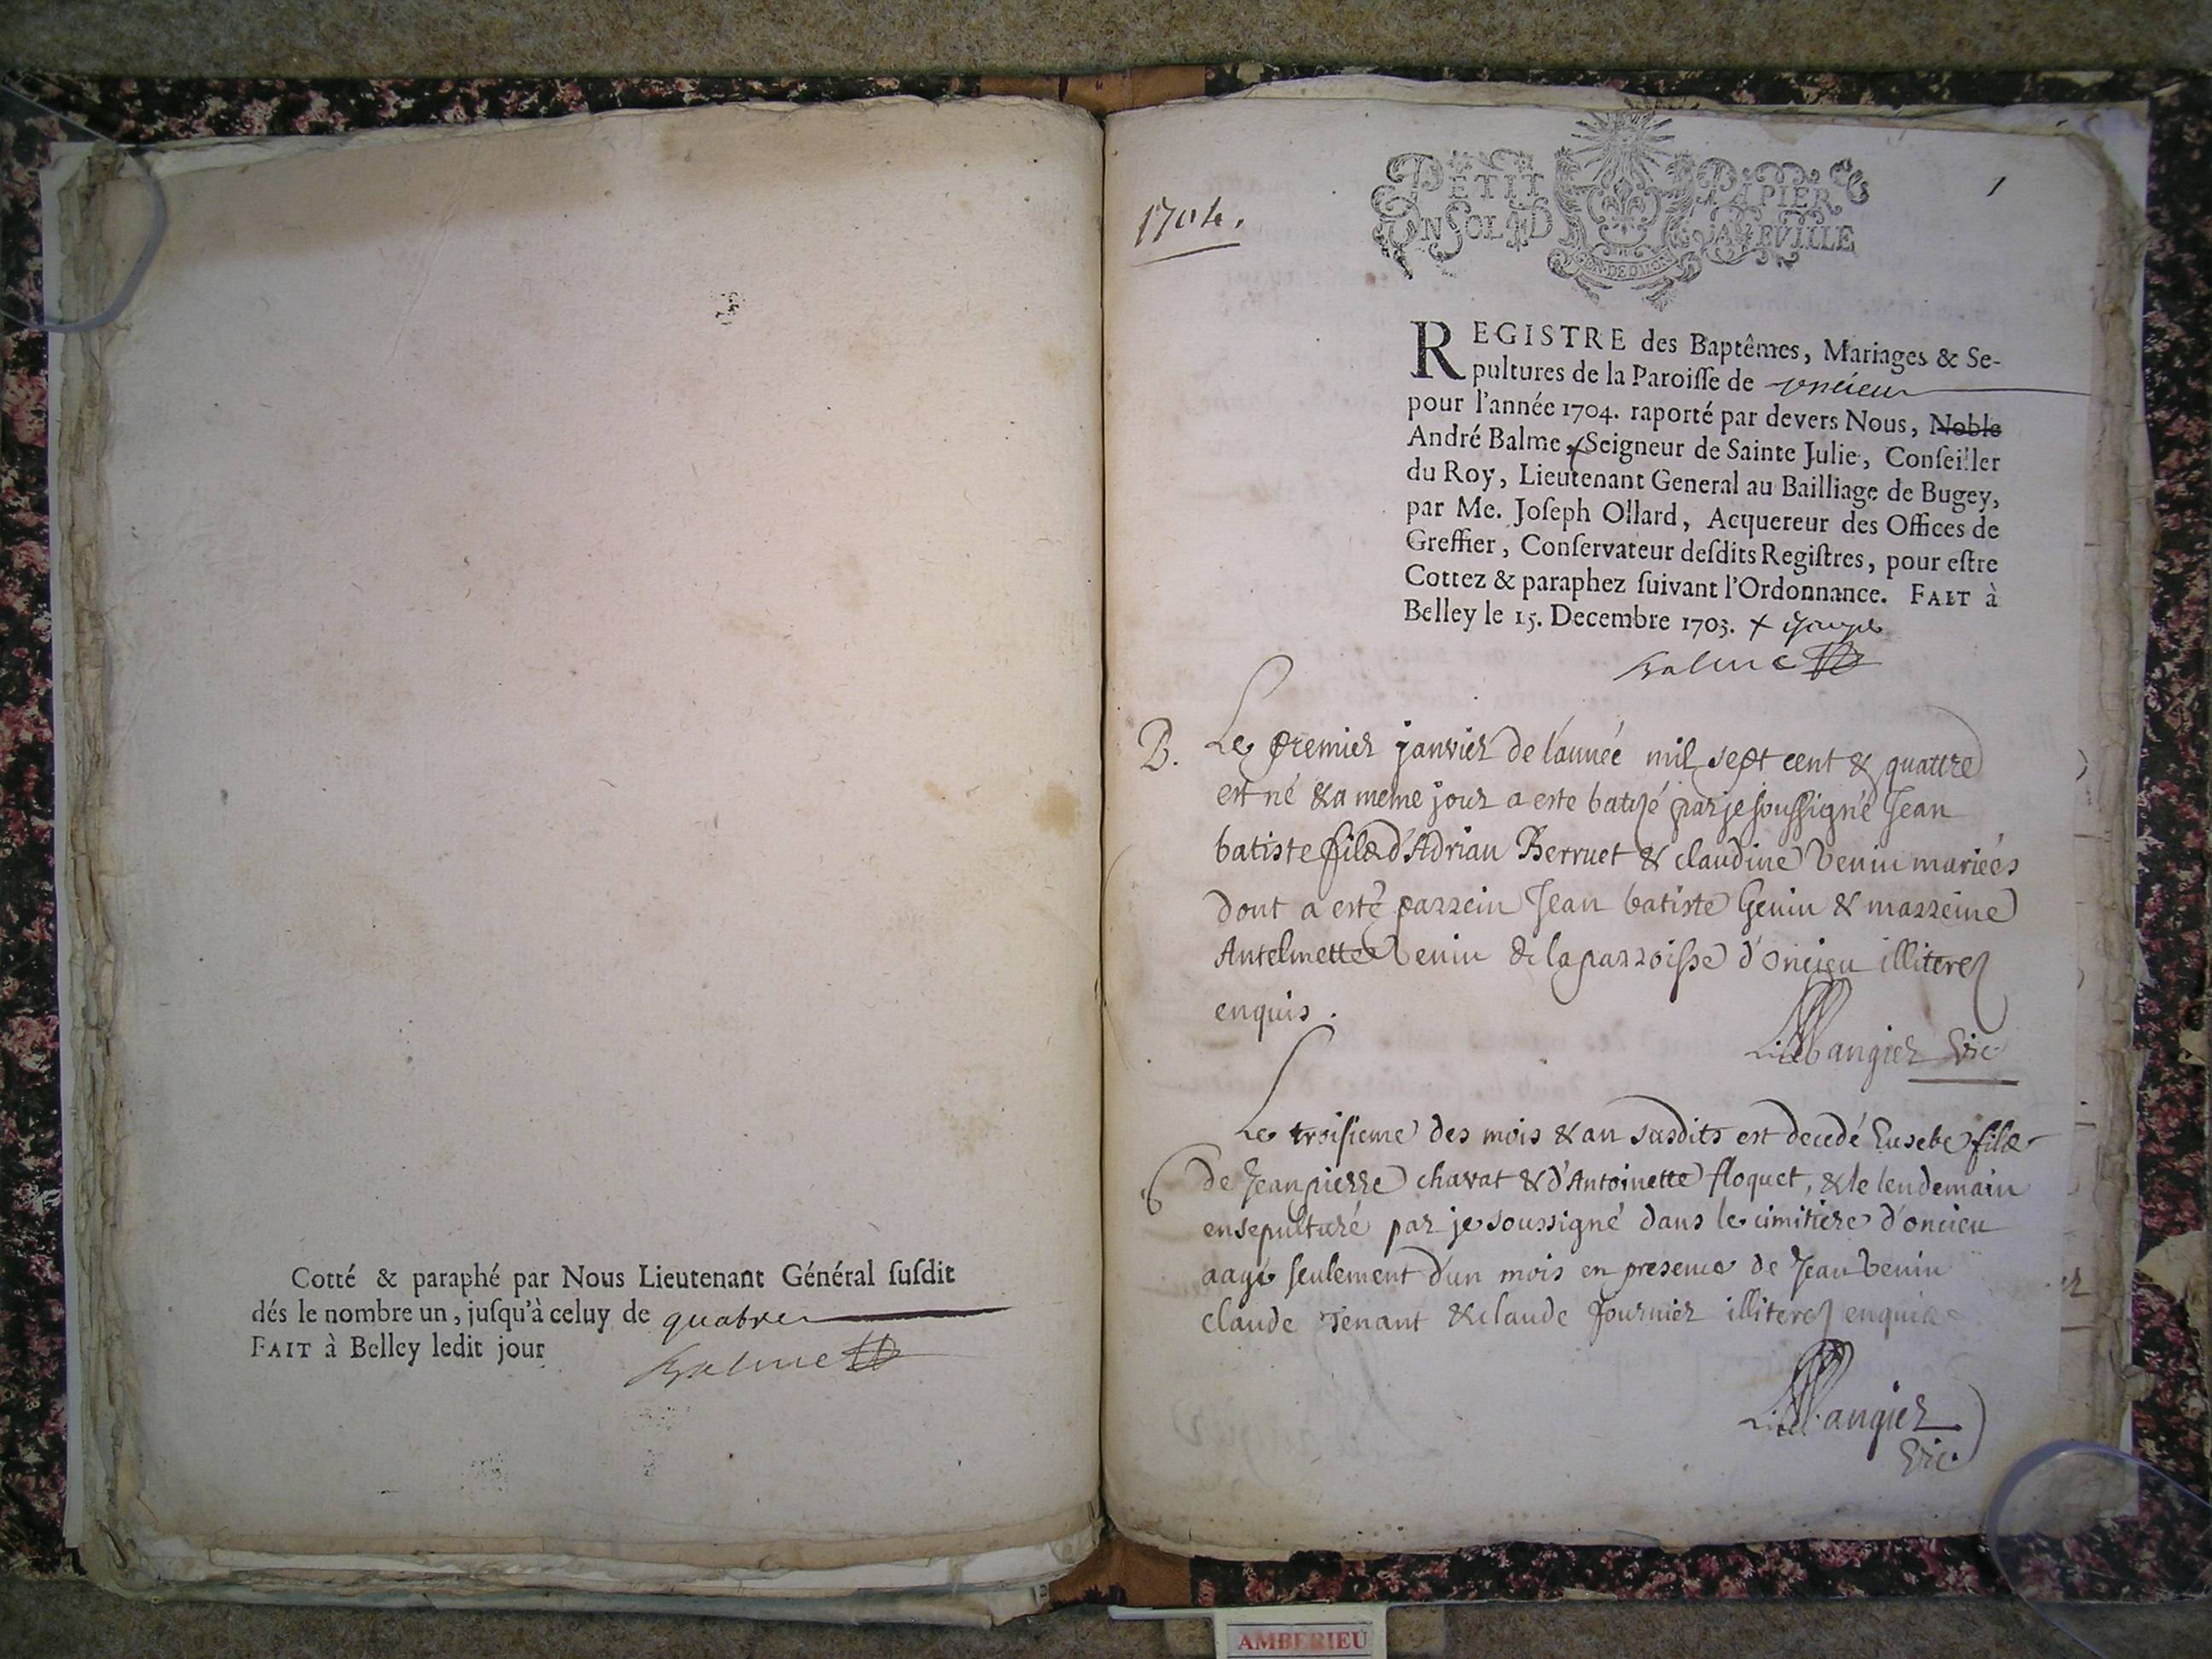 Cotté & paraphé par Nous Lieutenant Général ſuſdit
dés le nombre un, juſqu'à celuy de quatre
FAIT à Belley ledit jour
Balme
1704.
1
PETIT PAPIER
UN SOL LA FEVILLE
REGISTRE des Baptêmes, Mariages & Se-
pultures de la Paroiſſe de oncieu
pour l'année 1704. raporté par devers Nous, Noble
André Balme, Seigneur de Sainte Julie, Conſeiller
du Roy, Lieutenant General au Bailliage de Bugey,
par Me. Joſeph Ollard, Acquereur des Offices de
Greffier, Conſervateur deſdits Regiſtres, pour eſtre
Cottez & paraphez ſuivant l'Ordonnance. FAIT à
Belley le 15. Decembre 1703. +
Balme
B. Le premier janvier de l'année mil sept cent & quattre
est né & a meme jour a este batizé par je soussigné Jean
batiste fils d'Adrian Berruet & claudine Venin mariées
dont a esté parrein Jean batiste Genin & marreine
Antelmette Venin de la parroisse d'oncieu illiterez
enquis.
Mangier Vic
Le troisieme des mois & an susdits est decedé Eusebe fils
de Jean pierre chavat & d'Antoinette floquet, & le lendemain
ensepulturé par je soussigné dans le cimitiere d'oncieu
aagé seulement d'un mois en presence de Jean Venin
claude Tenant & claude fournier illiterez enquis
Mangier
Vic.
AMBERIEU